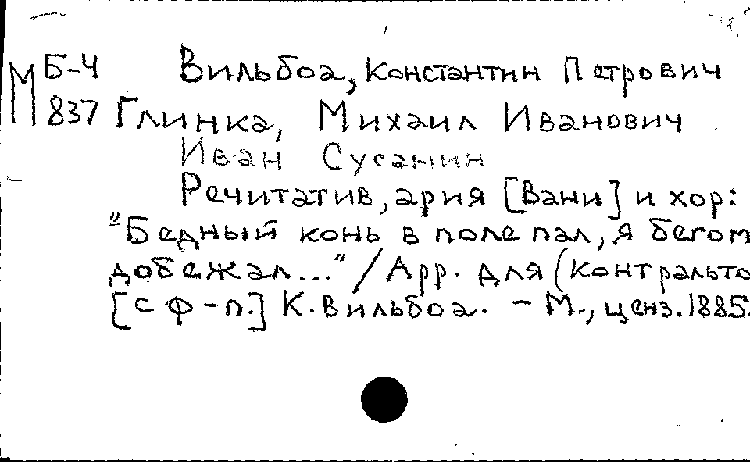 М Б-4 Вильбоа, Константин Петрович
837 Глинка, Михаил Иванович
Иван Сусанин
Речитатив, ария [Вани] и хор:
"Бедный конь в поле пал, я бегом
добежал..." / Арр. для (контральто
[с ф-п.] К. Вильбоа. - М., ценз. 1885.